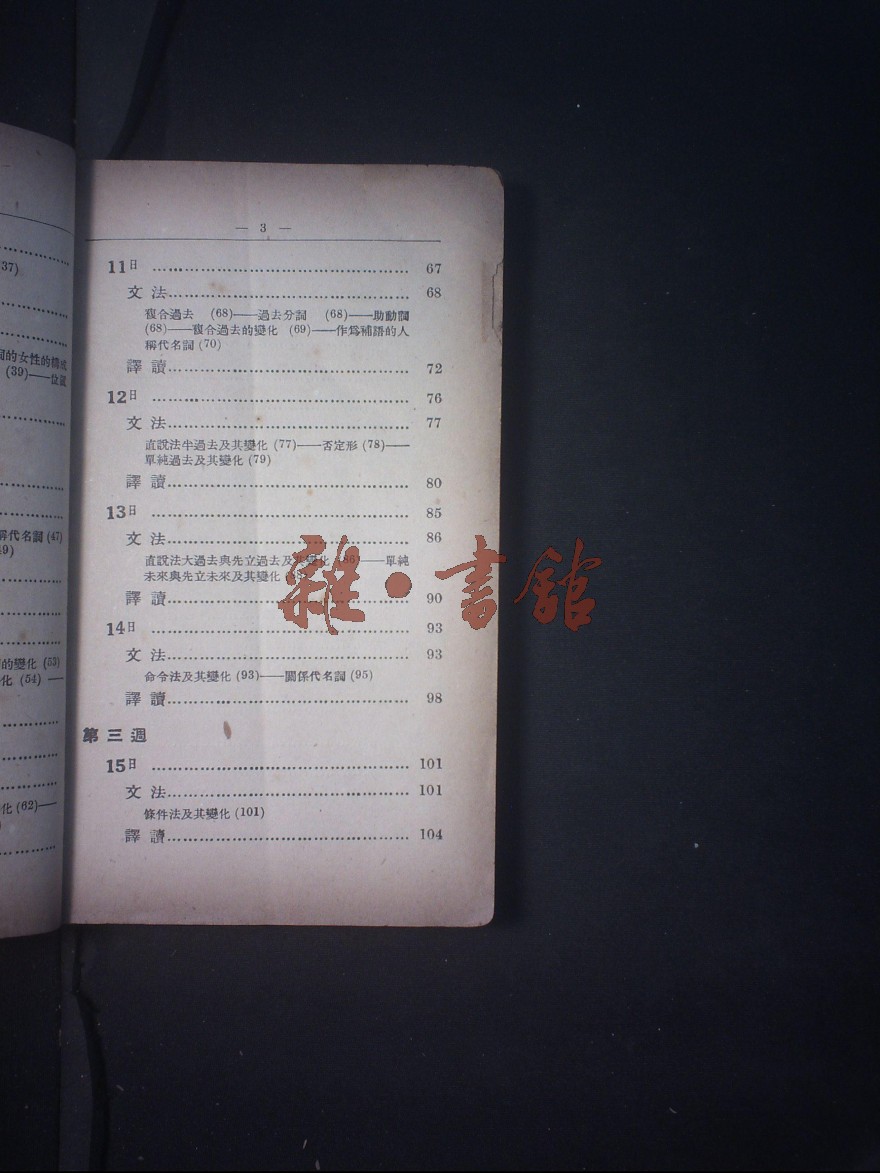 37)
詞的女性的構成
(39)——位置
稱代名詞 (47)
49)
的變化 (53)
化 (54) ——
化 (62)——
— 3 —
11日 ………………………………… 67
文 法………………………………… 68
複合過去 (68)——過去分詞 (68)——助動詞
(68)——複合過去的變化 (69)——作爲補語的人
稱代名詞 (70)
譯 讀………………………………… 72
12日 ………………………………… 76
文 法………………………………… 77
直說法半過去及其變化 (77)——否定形 (78)——
單純過去及其變化 (79)
譯 讀………………………………… 80
13日 ………………………………… 85
文 法………………………………… 86
直說法大過去與先立過去及其變化 (86)——單純
未來與先立未來及其變化
譯 讀………………………………… 90
14日 ………………………………… 93
文 法………………………………… 93
命令法及其變化 (93)——關係代名詞 (95)
譯 讀………………………………… 98
第 三 週
15日 ………………………………… 101
文 法………………………………… 101
條件法及其變化 (101)
譯 讀………………………………… 104
雜·書館